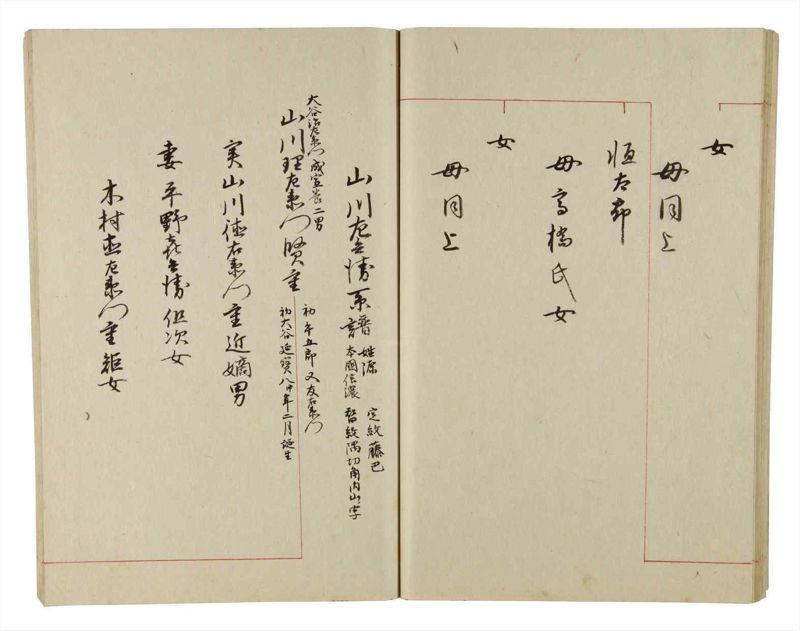 女
母同上
恒太郎
母高橋氏女
女
母同上
山川左兵衛系譜
姓源
本國信濃
定紋藤巴
替紋隅切角内山ノ字
大谷治左衛門成宣養二男
山川理左衛門賢重
初午五郎又友右衛門
初大谷延寶八申年二月誕生
実山川徳右衛門重近嫡男
妻平野喜兵衛但次女
木村杢左衛門重矩女